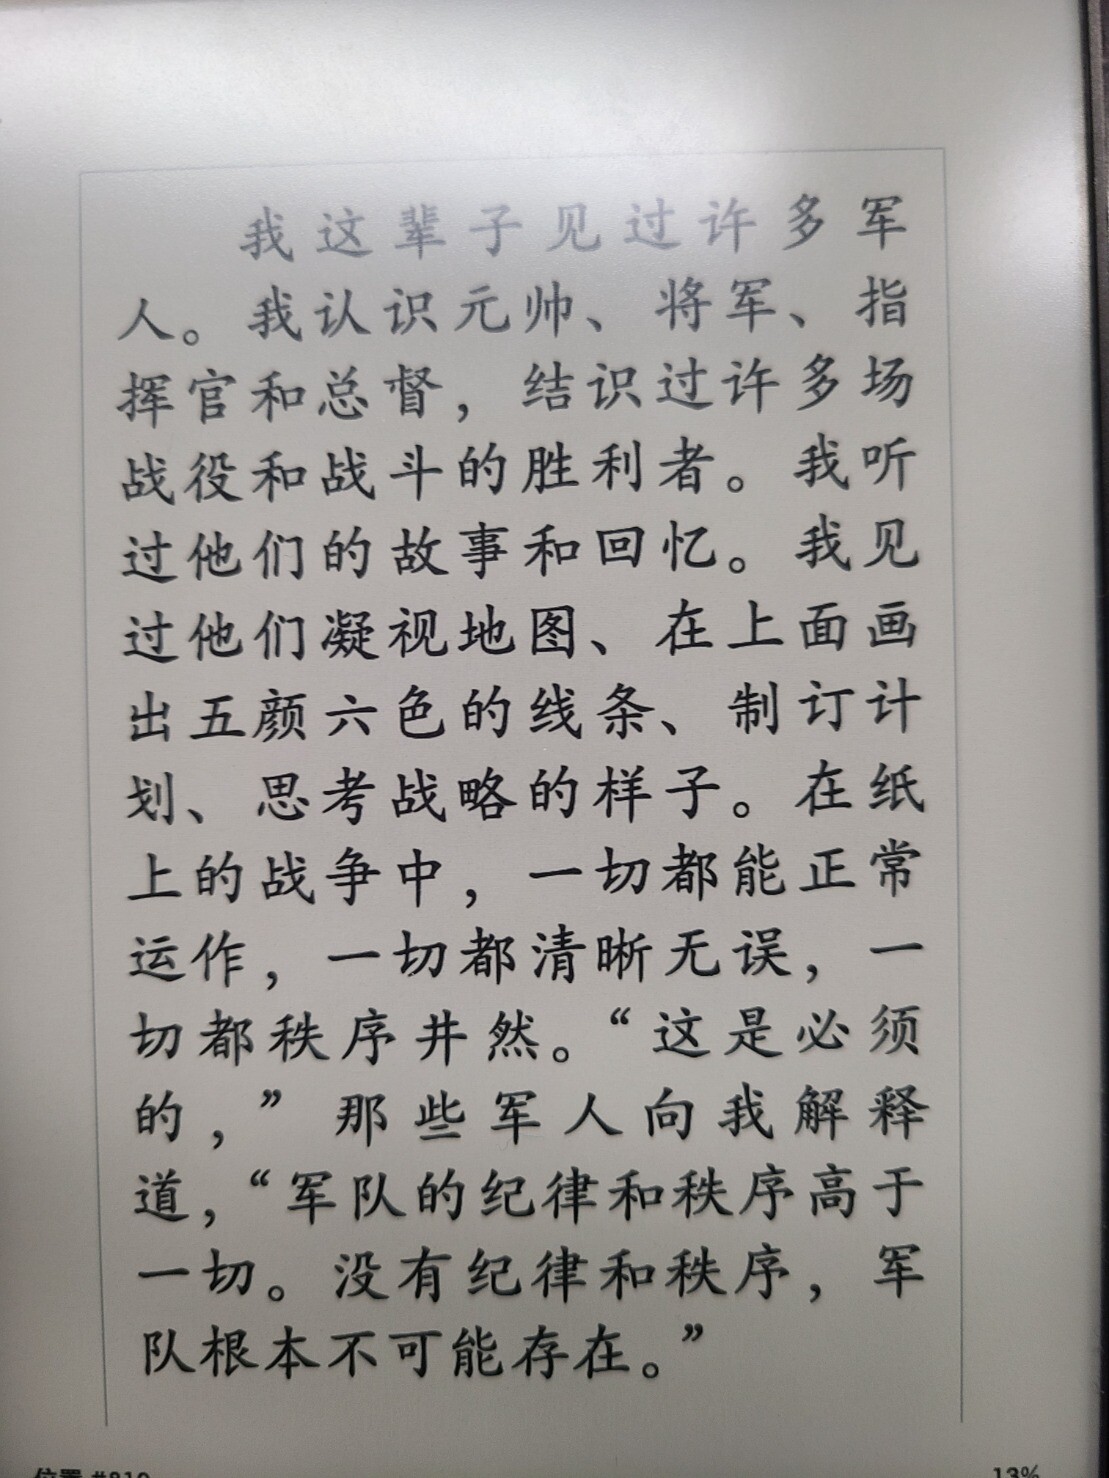 我这辈子见过许多军
人。我认识元帅、将军、指
挥官和总督，结识过许多场
战役和战斗的胜利者。我听
过他们的故事和回忆。我见
过他们凝视地图、在上面画
出五颜六色的线条、制订计
划、思考战略的样子。在纸
上的战争中，一切都能正常
运作，一切都清晰无误，一
切都秩序井然。“这是必须
的，”那些军人向我解释
道，“军队的纪律和秩序高于
一切。没有纪律和秩序，军
队根本不可能存在。”
位置 #819
13%